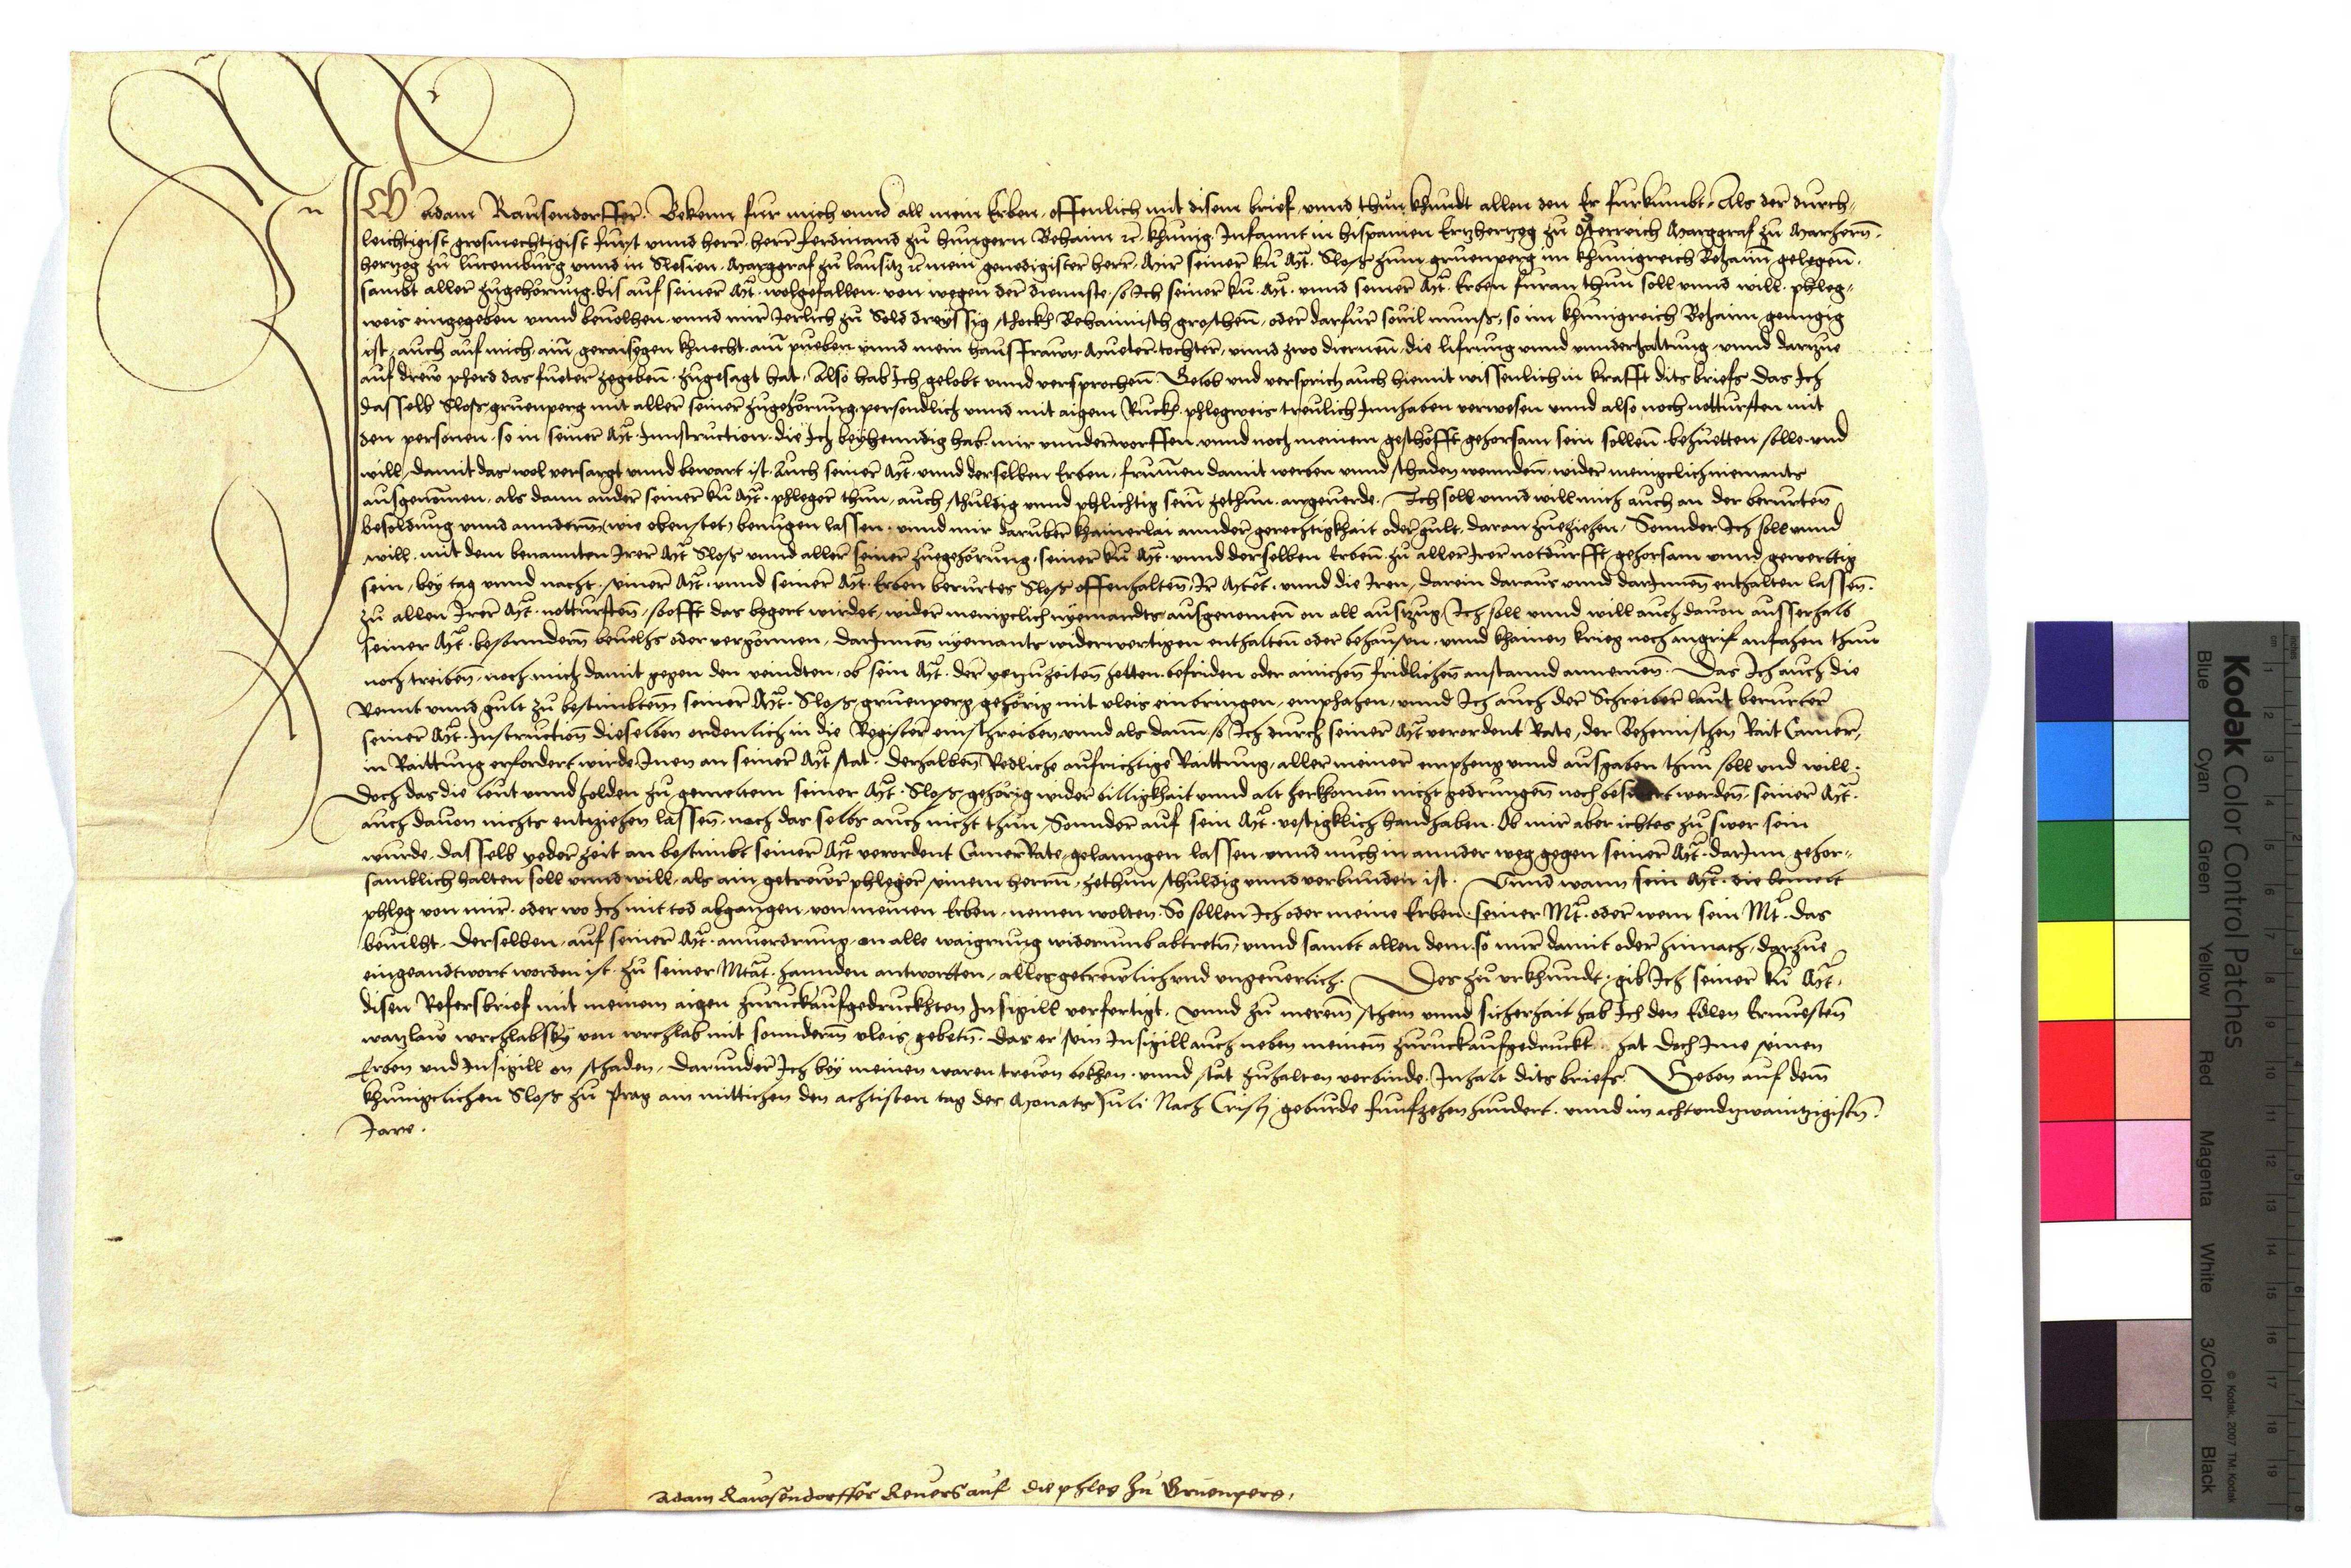 Ich Adam Rausendorffer. Bekenn fur mich vnnd all mein Erben, offenlich mit disem brief, vnnd thun khundt allen den Er furkumbt, Als der durch-
leichtigist grosmechtigist furst vnnd herr, herr Ferdinand zu Hungern Behaim ꝛc. khunig, Infannt in Hispanien Ertzhertzog zu Osterreich Marggraf zu Marhern.
hertzog zu Lucemburg vnnd in Slesien, Marggraf zu Lausitz ꝛc mein genedigister herr, Mir seiner ku. Mt. Sloß zum gruenperg im khunigreich Behaim gelegen.
sambt aller zugehorung, bis auf seiner Mt. wolgefallen, von wegen der diennste, so Ich seiner ku. Mt. vnnd seiner Mt. Erben furan thun soll vnnd will, phleg-
weis eingegeben vnnd beuolhen, vnnd mir Jerlich zu Sold dreyssig schockh Behaimisch groschen, oder darfur souil munß, so im khunigreich Behaim genngig
ist, auch auf mich, ain geraisigen khnecht, ain pueben vnnd mein hausfrawn, Mueter, tochter, vnnd zwo diernen, die lifrung vnnd vnnderhaltung, vnnd darzue
auf drew pherd das fueter zegeben, zugesagt hat, Also hab Ich gelobt vnnd versprochen. Gelob vnd versprich auch hiemit wissenlich in krafft dits briefs das Ich
dasselb Sloß gruenperg mit aller seiner zugehorung, personndlich vnnd mit aigem Ruckh, phlegweis treulich Innhaben verwesen vnnd also noch notturften mit
den personen, so in seiner Mt. Innstruction, die Ich beyhenndig hab, mir vnnderworffen, vnnd noch meinem geschefft gehorsam sein sollen, behuetten solle vnd
will, damit das wol versorgt vnnd bewart ist, Auch seiner Mt. vnnd derselben Erben, frumen damit werben vnnd schaden wennden, wider menigclich niemants
ausgenomen, als dann ander seiner ku. Mt. phleger thun, auch schuldig vnnd phlichtig sein zethun, angeuerde. Ich soll vnnd will mich auch an der berurten
besoldung vnnd anndern (wie oben stet) benugen lassen, vnnd mir daruber khainerlai annder gerechtigkhait oder gult, daran zueziehen, Sonnder Ich soll vnnd
will, mit dem benannten Irer Mt. Sloß vnnd aller seiner zuegehorung, seiner ku. Mt. vnnd derselben Erben, zu aller Irer notdurfft, gehorsam vnnd gewerttig
sein, bey tag vnnd nacht, seiner Mt. vnnd seiner Mt. Erben berurtes Sloß offenhalten, Ir Mtat. vnnd die Iren, darein daraus vnnd darInnen enthalten lassen.
zu allen Irer Mt. notturften, so offt das begert wirdet, wider menigclich nyemandts ausgenomen on all auszug, Ich soll vnnd will auch dauon ausserhalb
seiner Mt. besonndern beuelhs oder vergonnen, darInnen nyemants widerwertigen enthalten oder behausen, vnnd khainen krieg noch angrif anfahen thun
noch treiben, noch mich damit gegen den veindten, ob sein Mt. der yetzuzeiten hetten, befriden oder ainichen fridlichen anstannd annemen. Das Ich auch die
Rennt vnnd gult zu bestimbtem seiner Mt. Sloß gruenperg gehorig mit vleis einbringen, emphahen, vnnd Ich auch der Schreiber laut berurter
seiner Mt. Instruction dieselben ordenlich in die Register einschreiben, vnnd als dann, so Ich durch seiner Mt. verordent Rate, der Behemischen Rait Camer,
in Raittung erfordert wirde, Inen an seiner Mt. stat, derhalben Redliche aufrichtige Raittung, aller meiner emphenng vnnd ausgaben thun soll vnd will.
Doch das die leut vnnd holden zu gemeltem seiner Mt. Sloß gehorig wider billigkhait vnnd alt herkhomen nicht gedrungen noch beswert werden, seiner Mt.
auch dauon nichts entziehen lassen, noch das selbs auch nicht thun, Sonnder auf sein Mt. vestigklich handhaben. Ob mir aber ichtes zu swer sein
wurde, dasselb yeder zeit an bestimbt seiner Mt. verordent CamerRate, gelanngen lassen, vnnd mich in annder weg gegen seiner Mt. darInn gehor-
samblich halten soll vnnd will, als ain getrewer phleger, seinem herrn, zethun schuldig vnnd verbunden ist. Vnnd wann sein Mt. die bemelt
phleg von mir, oder wo Ich mit tod abgangen, von meinen Erben, nemen wolten. So sollen Ich oder meine Erben, seiner Mt. oder wem sein Mt. das
beuilht, derselben, auf seiner Mt. anuordrung, on alle waigrung widerumb abtretten, vnnd sambt allen dem, so mir damit oder hinnach, darzue
eingeandtwort worden ist, zu seiner Mtat. hannden antwortten, alles getrewlich vnd vngeuerlich. Des zu vrkhundt, gib Ich seiner ku. Mt.
disen Refersbrief mit meinem aigen zuruckaufgedruckhten Insigill verfertigt. Vnnd zu merern schein vnnd sicherhait hab Ich den Edlen Ernuesten
watzlaw wrchlabsky von wrchlab mit sonnderm vleis gebetn, das er sein Insigill auch neben meinem zuruckaufgedruckt hat, doch Ime seinen
Erben vnd Insigill on schaden, darunder Ich bey meinen waren trewn bekhen, vnnd stat zuhalten verbinde, Inhalt dits briefs. Geben auf dem
khunigclichen Sloß zu Prag am mittichen den achtisten tag des Monats Juli Nach Cristi geburde funfzehenhundert, vnnd im achtundzwaintzigistn.
Jare.
Adam Rawsendorffer Reuers auf die phleg zu Gruenperg.